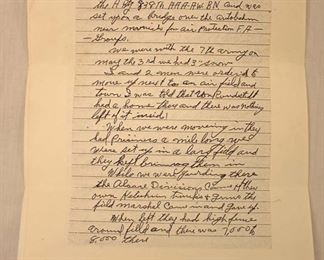 the H Btry 839th AAA. AW. BN and was
set upon a Bridge over the autobahn
near munich for air Protection F.A.
Groups.
we were with the 7th army on
may the 3rd we had 3" snow
I and 2 men were ordered to
move up next to an air field and
town I was told that Von Rundstedt
had a home there and there was nothing
left of it inside!
When we were moveing in they
had Prisiners a mile long we
were set up in a large field and
they kept bringing them in
While we were guarding there
the Division Came
own Kitchen trucks &
field marshel Came in and gave up
When left they had high fence
around field and there was 7,000 to
8,000 there